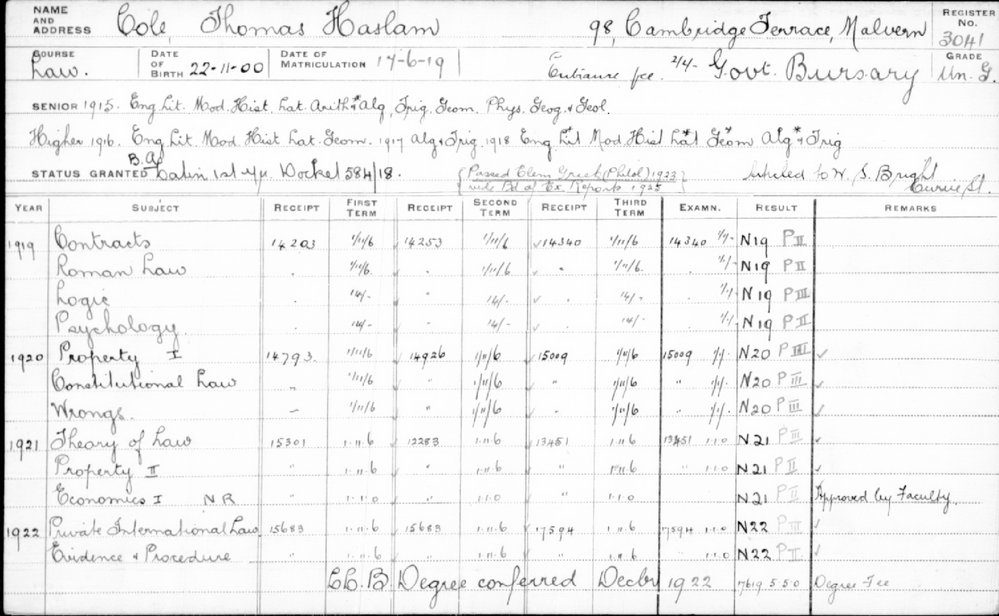 NAME AND ADDRESS Cole, Thomas Haslam 98, Cambridge Terrace, Malvern REGISTER No. 3041
COURSE Law. DATE OF BIRTH 22-11-00 DATE OF MATRICULATION 17-6-19 Entrance fee 2/4/- Govt. Bursary GRADE Un. G.
SENIOR 1915. Eng Lit. Mod. Hist. Lat. Arith* Alg, Trig. Geom. Phys. Geog. & Geol.
Higher 1916. Eng Lit. Mod Hist Lat. Geom. 1917 Alg & Trig 1918 Eng Lit Mod. Hist Lat* Geom Alg* & Trig
B.A.
STATUS GRANTED Latin 1 Docket 584/18. (Passed Elem Greek (Philol) 1923 vide Bd of Ex. Reports 1925) to W. S. Bright Currie St.
YEAR SUBJECT RECEIPT FIRST TERM RECEIPT SECOND TERM RECEIPT THIRD TERM EXAMN. RESULT REMARKS
1919 Contracts 14203 1/11/6 14253 1/11/6 14340 1/11/6 14340 1/1/- N19 P II
Roman Law " 1/11/6 " 1/11/6 " 1/11/6 1/1/- N19 P II
Logic " 14/- " 14/- " 14/- 1/1/- N19 P III
Psychology " 14/- 14/- " 14/- 1/1/- N19 P II
1920 Property I 14793 1/11/6 14926 1/11/6 15009 1/11/6 15009 1/1/- N20 P III
Constitutional Law " 1/11/6 " 1/11/6 1/11/6 " 1/1/- N20 P III
Wrongs. " 1/11/6 " 1/11/6 " 1/11/6 " 1/1/- N20 P III
1921 Theory of Law 15301 1.11.6 12283 1.11.6 13451 1.11.6 13451 1.1.0 N21 P III
Property II " 1.11.6 " 1.11.6 1.11.6 " 1.1.0 N21 P II
Economics I N R " 1.1.0 " 1.1.0 " 1.1.0 " 1.1.0 N21 P II Approved by Faculty.
1922 Private International Law 15683 1.11.6 15683 1.11.6 17594 1.11.6 17594 1.1.0 N22 P III
Evidence & Procedure " 1.11.6 " 1.11.6 " 1.11.6 1.1.0 N22 P II
LL.B Degree conferred Decbr 1922 7619 5 5 0 Degree Fee